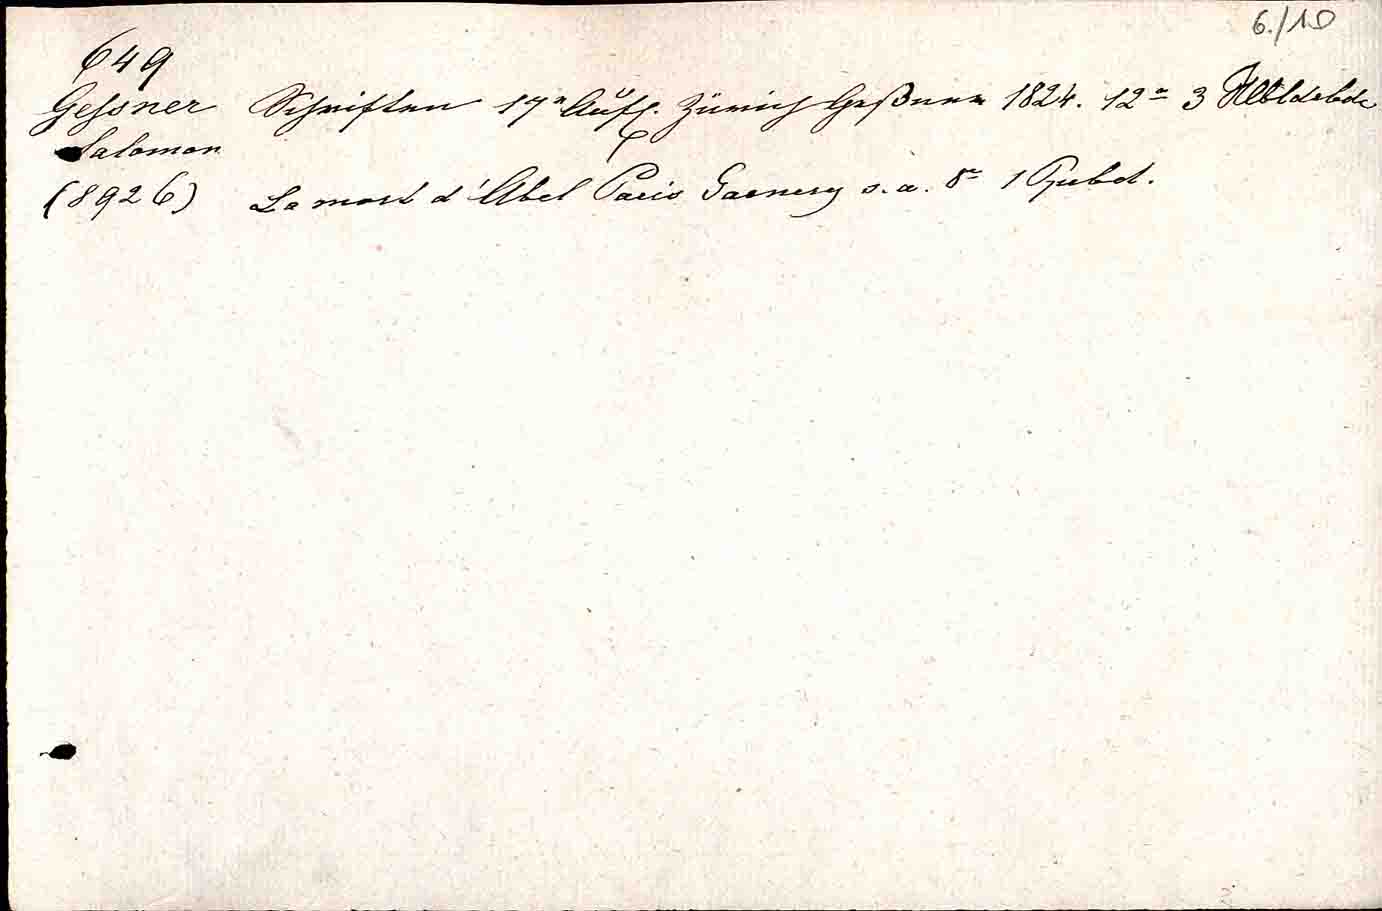 6./10
649
Gessner Schriften 17e Aufl. Zürich Geßner 1824. 12° 3 Hbldrbde
Salomon
(8926) La mort d'Abel Paris Garnery s. a. 8° 1